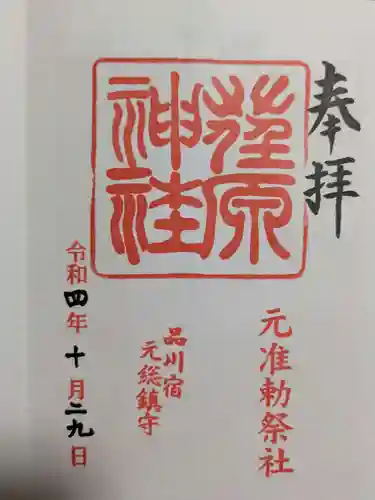 奉拝
元准勅祭社
荏原
神社
品川宿
元総鎮守
令和四年十月二九日